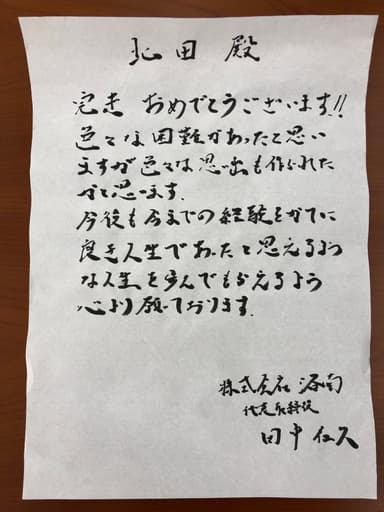 北田 殿
完走 おめでとうございます!!
色々な困難があったと思い
ますが色々な思い出も作られた
かと思います.
今後も今までの経験をかてに
良き人生であったと思えるよう
な人生を歩んでもらえるよう
心より願っております.
株式会社
代表取締役
田中